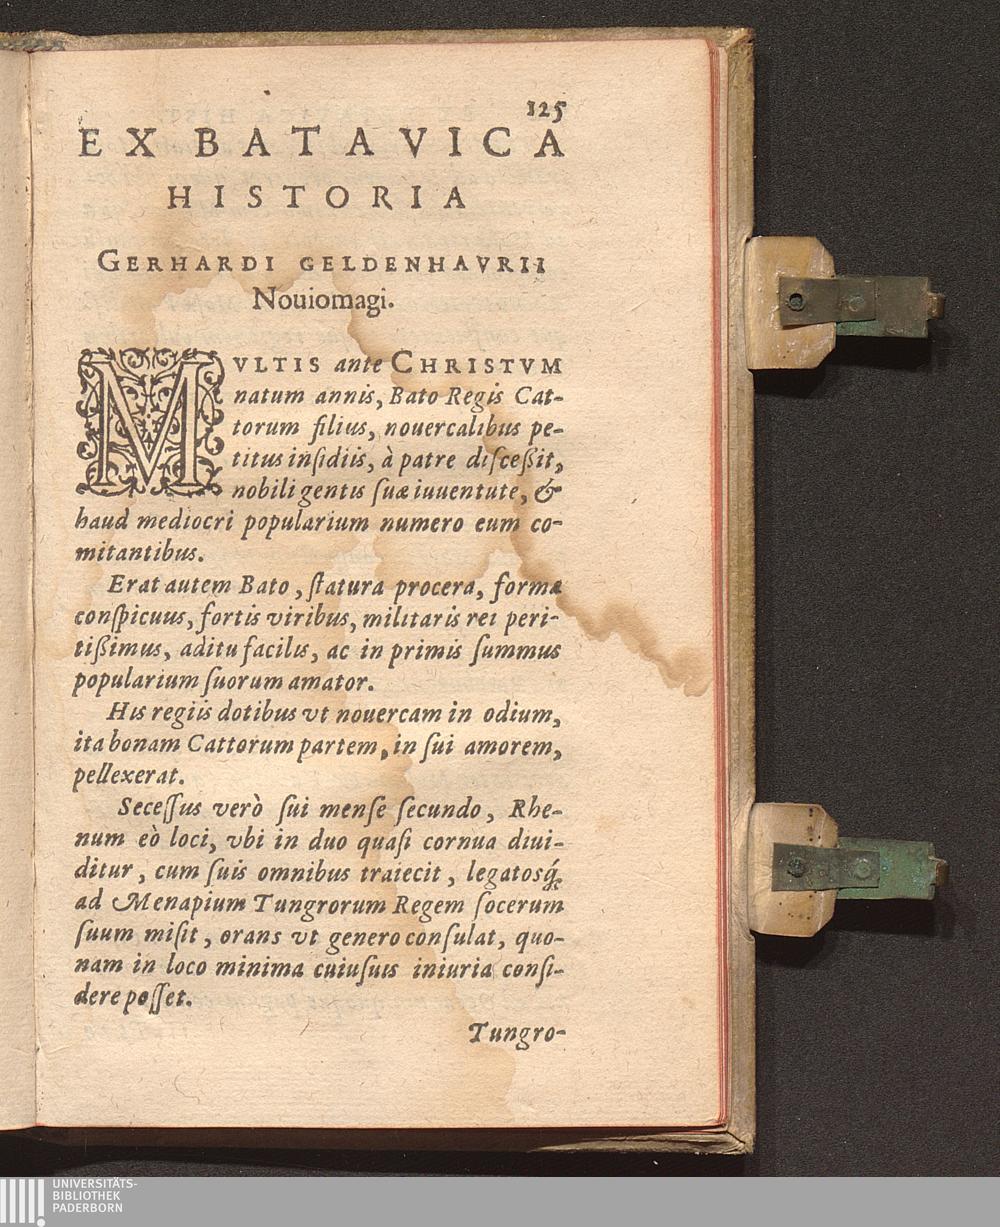 125
EX BATAVICA
HISTORIA
GERHARDI GELDENHAVRII
Nouiomagi.
MVLTIS ante CHRISTVM
natum annis, Bato Regis Cat-
torum filius, nouercalibus pe-
titus inſidiis, à patre diſceßit,
nobili gentis ſuæ iuuentute, &
haud mediocri popularium numero eum co-
mitantibus.
Erat autem Bato, ſtatura procera, formæ
conſpicuus, fortis viribus, militaris rei peri-
tißimus, aditu facilis, ac in primis ſummus
popularium ſuorum amator.
His regiis dotibus vt nouercam in odium,
ita bonam Cattorum partem, in ſui amorem,
pellexerat.
Seceſſus verò ſui menſe ſecundo, Rhe-
num eò loci, vbi in duo quaſi cornua diui-
ditur, cum ſuis omnibus traiecit, legatosq́;
ad Menapium Tungrorum Regem ſocerum
ſuum miſit, orans vt genero conſulat, quo-
nam in loco minima cuiuſuis iniuria conſi-
dere poſſet.
Tungro-
UNIVERSITÄTS-
BIBLIOTHEK
PADERBORN